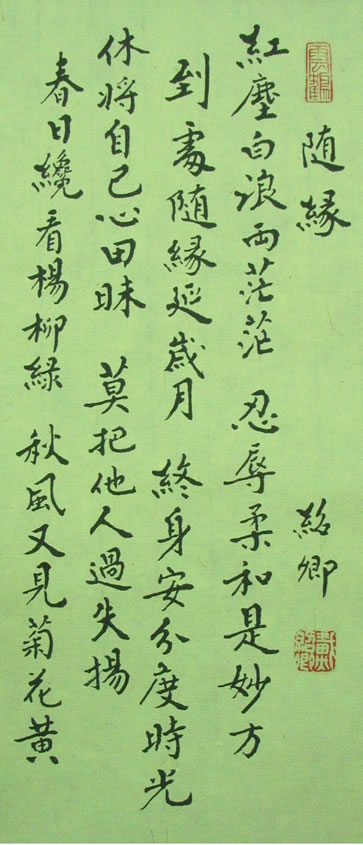 随緣 紹卿
紅塵白浪兩茫茫 忍辱柔和是妙方
到處随緣延歲月 終身安分度時光
休將自己心田昧 莫把他人過失揚
春日纔看楊柳緑 秋風又見菊花黃